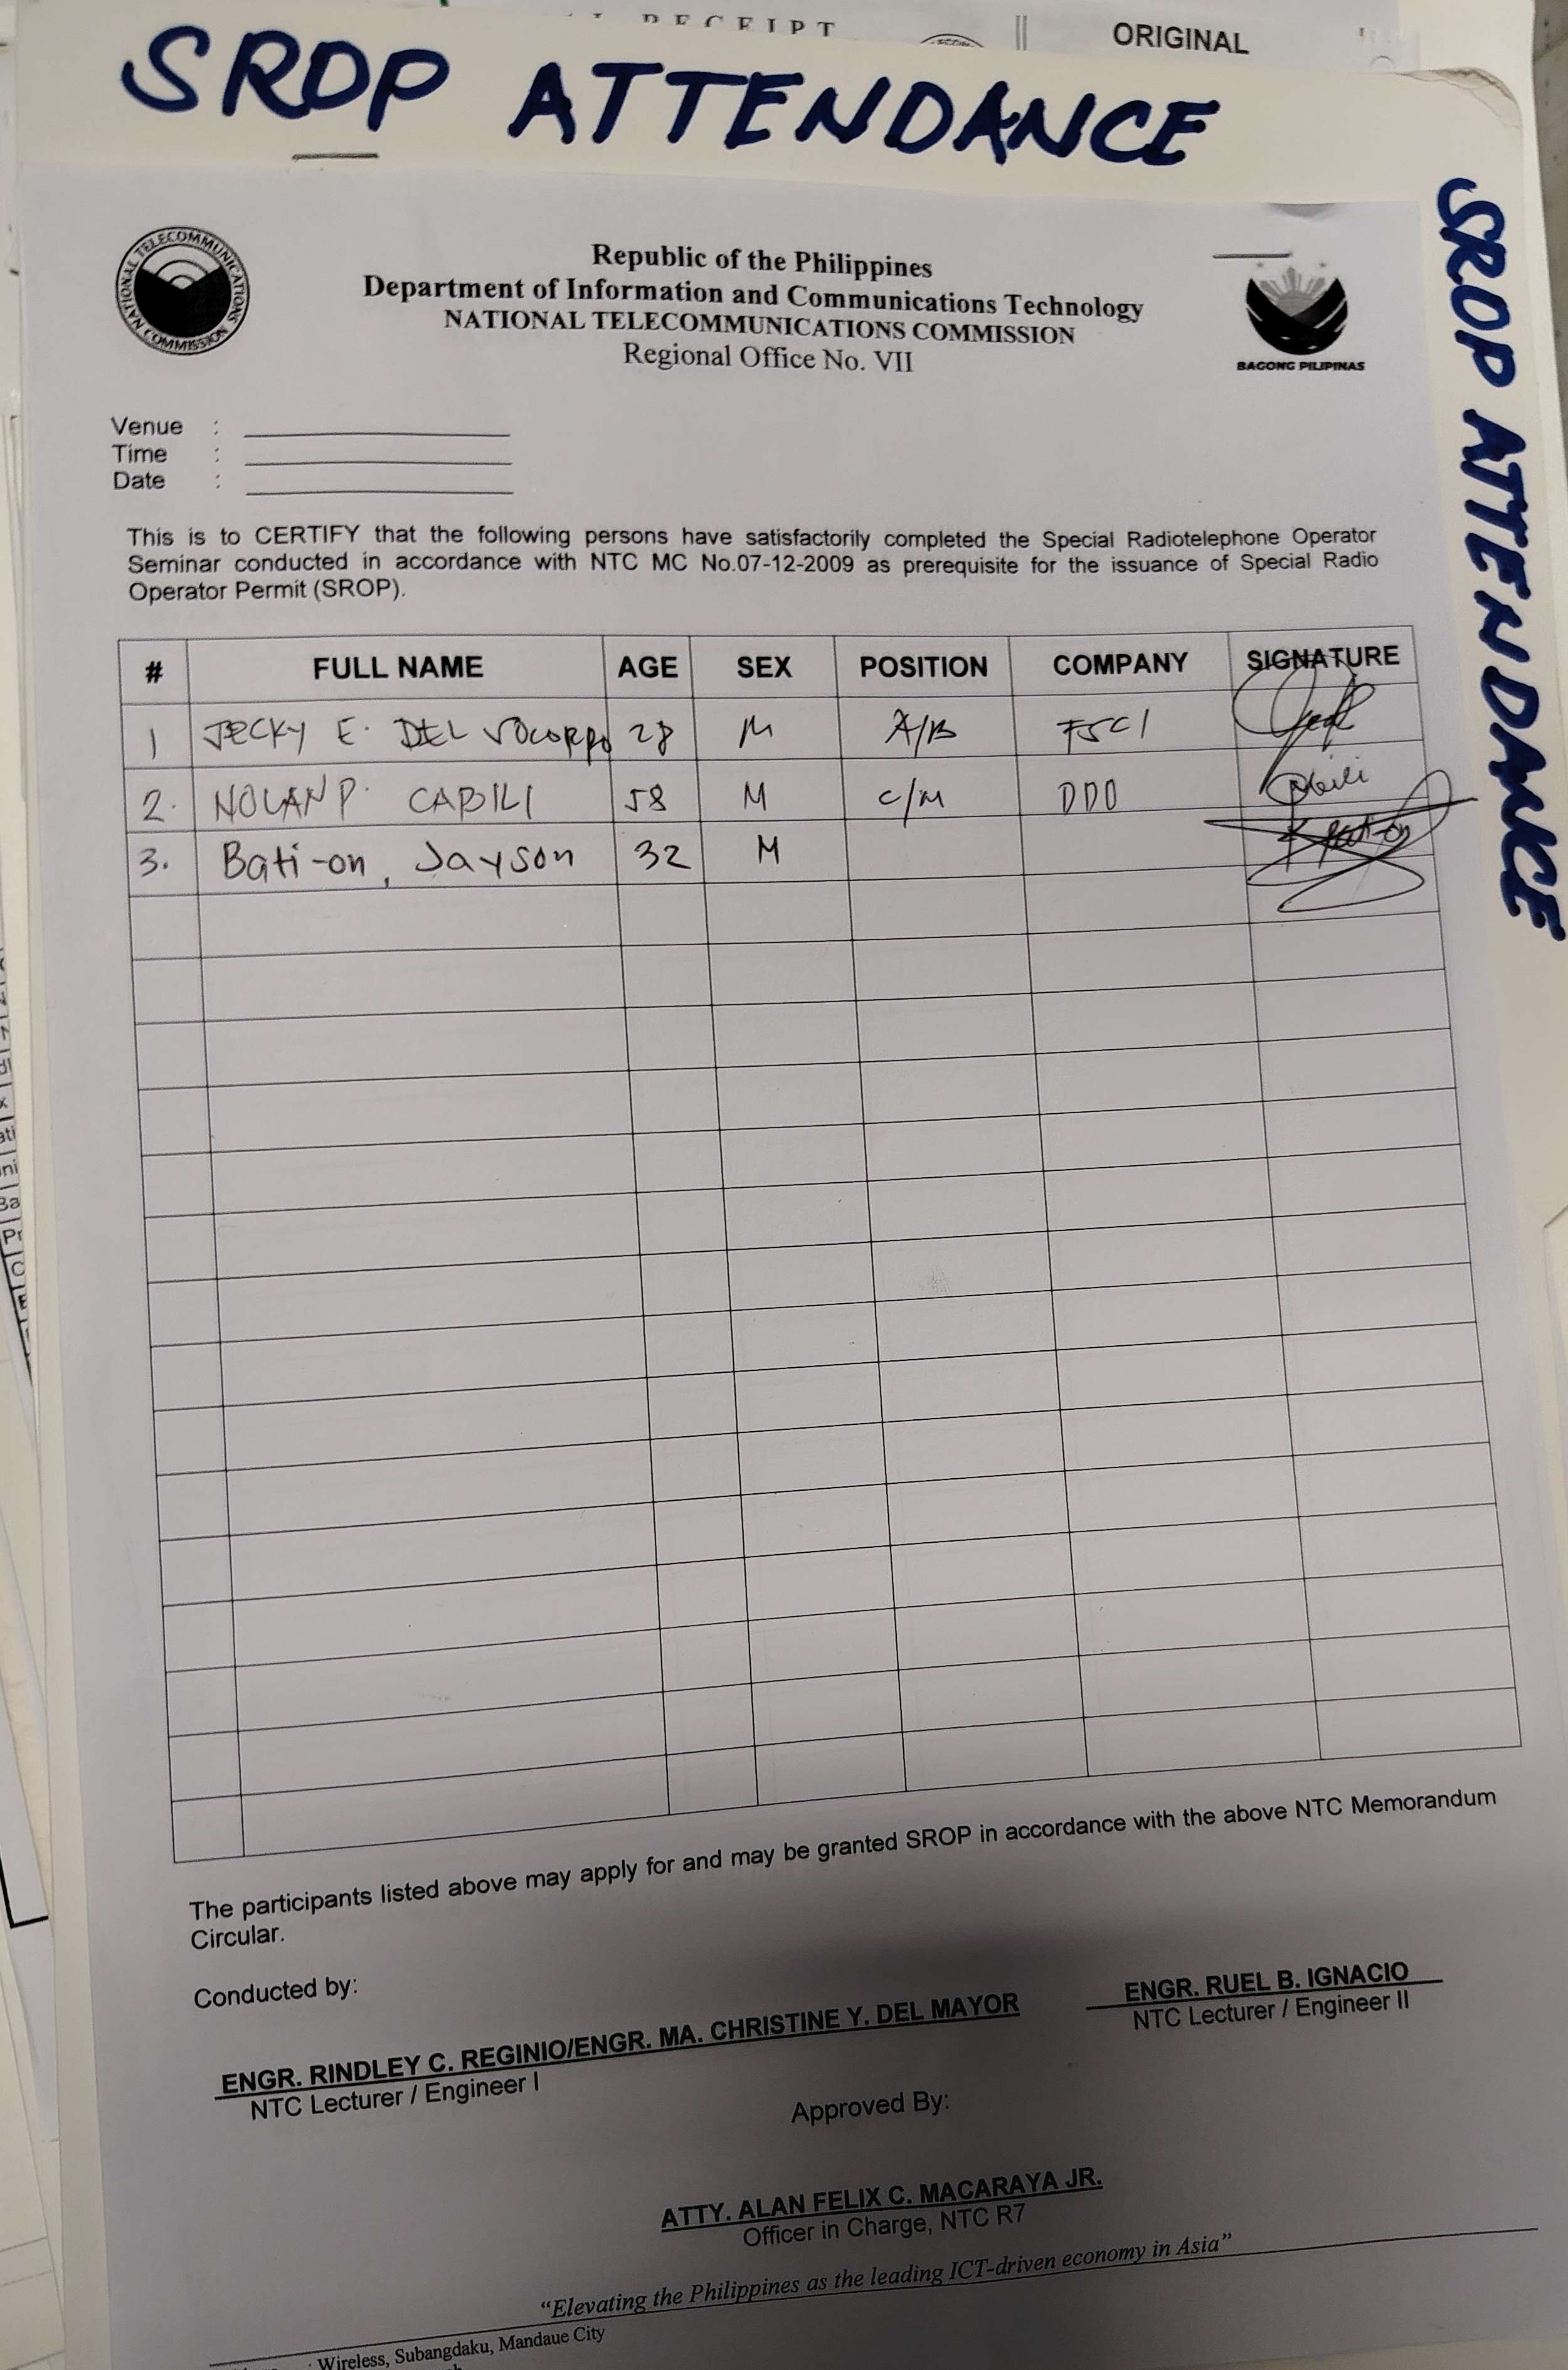 RECEIPT
ORIGINAL
SROP ATTENDANCE
SROP ATTENDANCE
NATIONAL TELECOMMUNICATIONS COMMISSION
Republic of the Philippines
Department of Information and Communications Technology
NATIONAL TELECOMMUNICATIONS COMMISSION
Regional Office No. VII
BAGONG PILIPINAS
Venue :
Time :
Date :
This is to CERTIFY that the following persons have satisfactorily completed the Special Radiotelephone Operator
Seminar conducted in accordance with NTC MC No.07-12-2009 as prerequisite for the issuance of Special Radio
Operator Permit (SROP).
# FULL NAME AGE SEX POSITION COMPANY SIGNATURE
1 JECKY E. DEL SOCORRO 28 M A/B FSCI
2. NOLAN P. CABILI 58 M C/M DDO
3. Bati-on, Jayson 32 M
The participants listed above may apply for and may be granted SROP in accordance with the above NTC Memorandum
Circular.
Conducted by:
ENGR. RINDLEY C. REGINIO/ENGR. MA. CHRISTINE Y. DEL MAYOR
NTC Lecturer / Engineer I
ENGR. RUEL B. IGNACIO
NTC Lecturer / Engineer II
Approved By:
ATTY. ALAN FELIX C. MACARAYA JR.
Officer in Charge, NTC R7
“Elevating the Philippines as the leading ICT-driven economy in Asia”
: Wireless, Subangdaku, Mandaue City